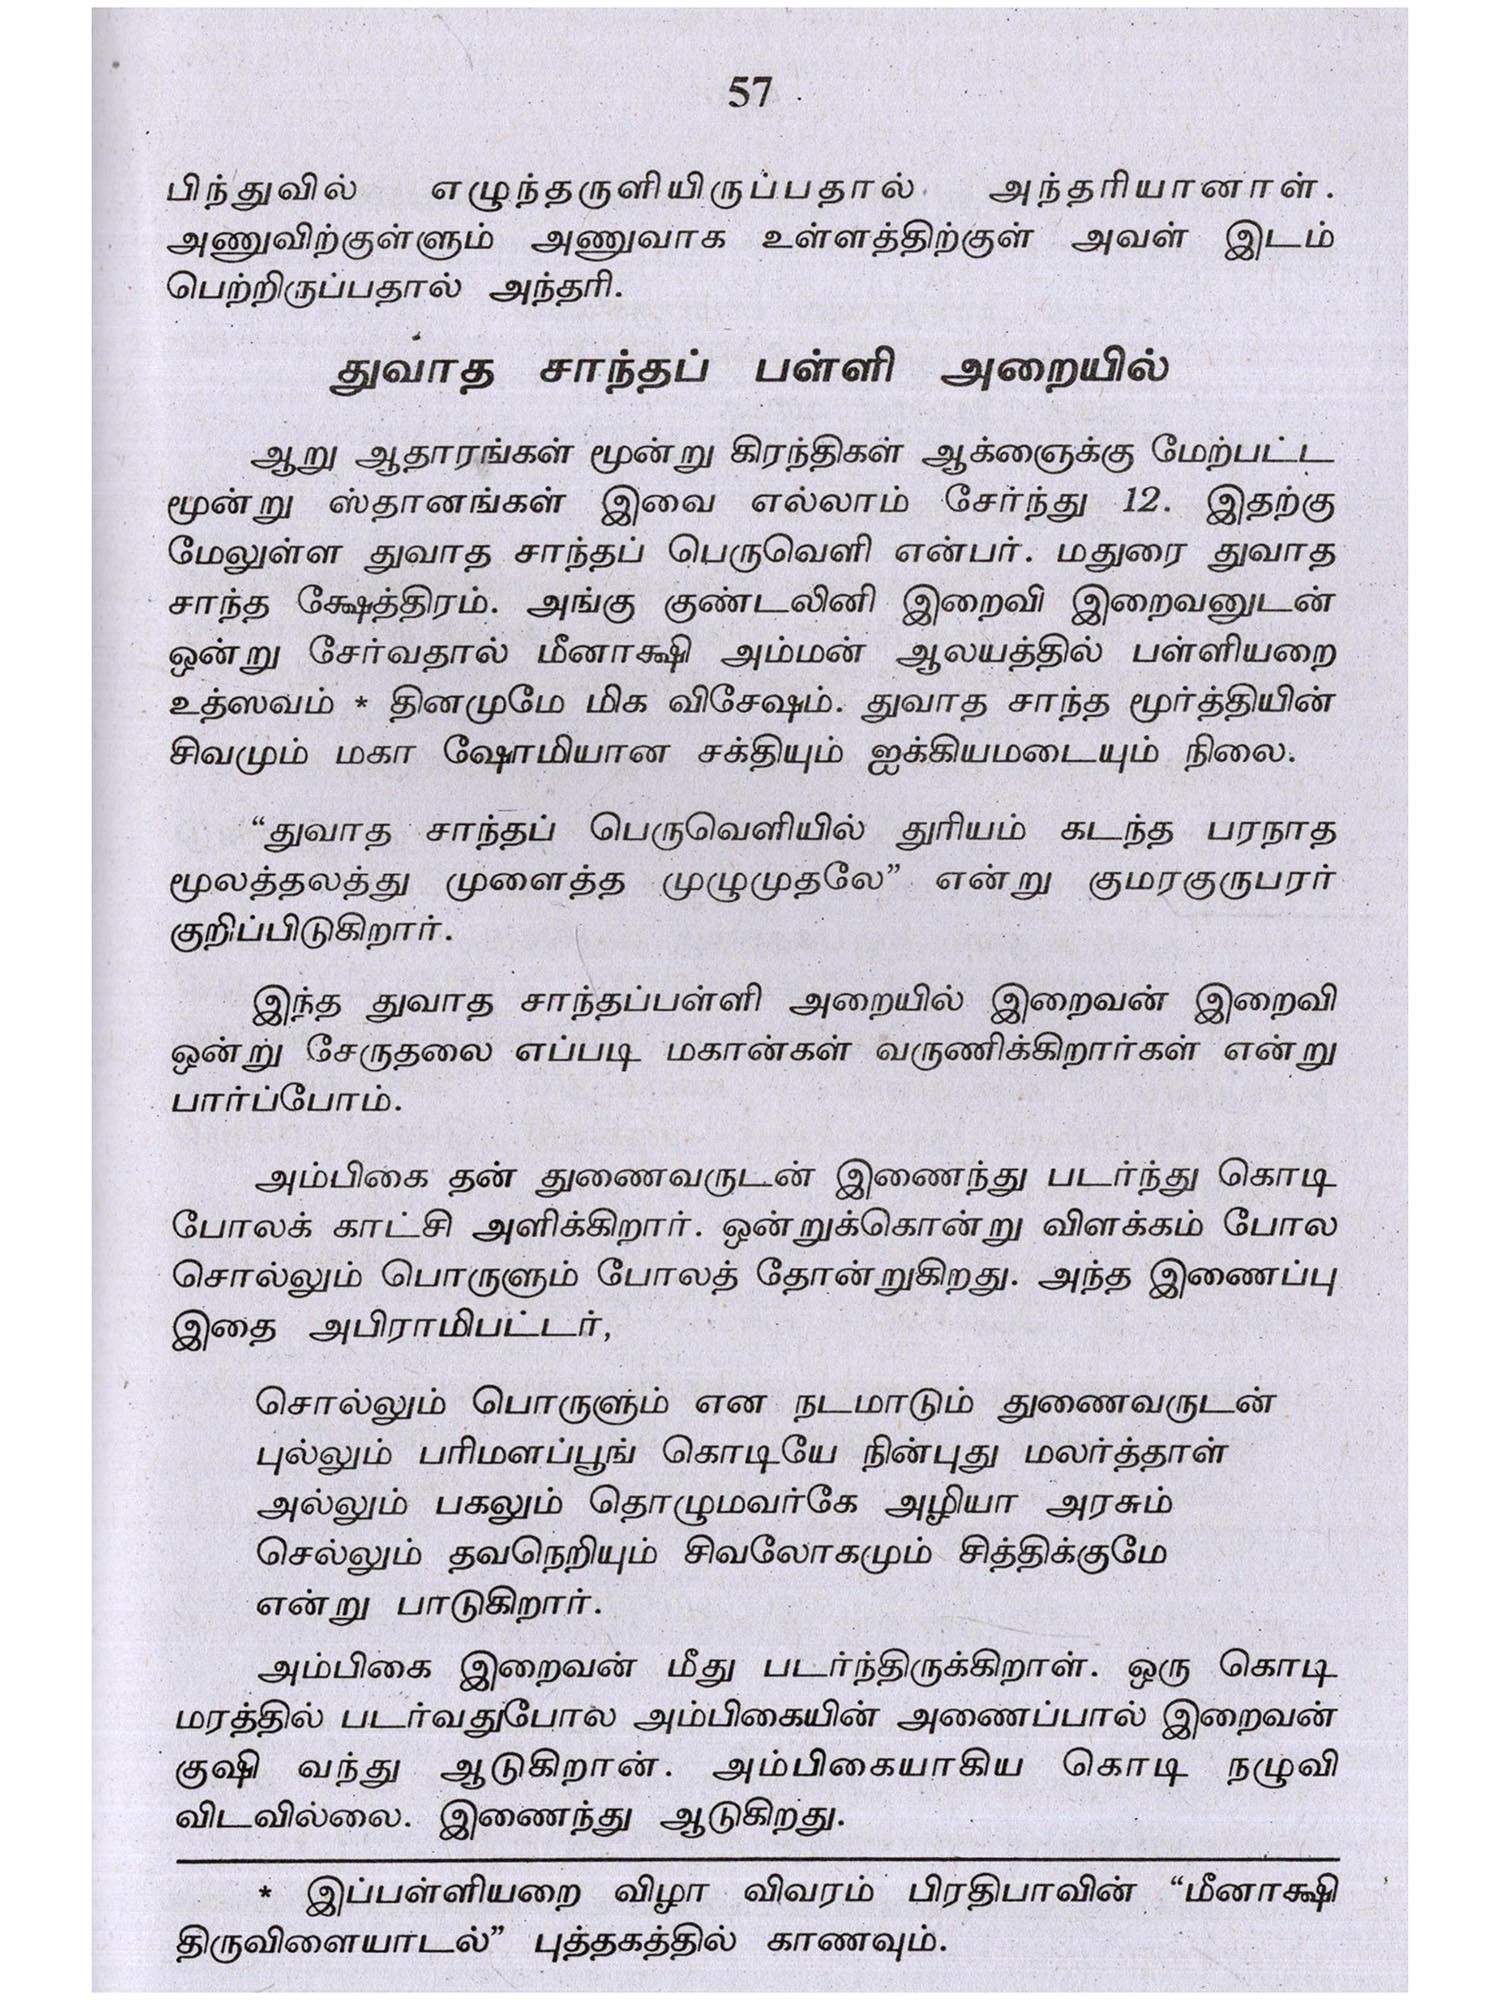 57
பிந்துவில் எழுந்தருளியிருப்பதால் அந்தரியானாள்.
அணுவிற்குள்ளும் அணுவாக உள்ளத்திற்குள் அவள் இடம்
பெற்றிருப்பதால் அந்தரி.
துவாத சாந்தப் பள்ளி அறையில்
ஆறு ஆதாரங்கள் மூன்று கிரந்திகள் ஆக்ஞைக்கு மேற்பட்ட
மூன்று ஸ்தானங்கள் இவை எல்லாம் சேர்ந்து 12. இதற்கு
மேலுள்ள துவாத சாந்தப் பெருவெளி என்பர். மதுரை துவாத
சாந்த க்ஷேத்திரம். அங்கு குண்டலினி இறைவி இறைவனுடன்
ஒன்று சேர்வதால் மீனாக்ஷி அம்மன் ஆலயத்தில் பள்ளியறை
உத்ஸவம் * தினமுமே மிக விசேஷம். துவாத சாந்த மூர்த்தியின்
சிவமும் மகா ஷோமியான சக்தியும் ஐக்கியமடையும் நிலை.
“துவாத சாந்தப் பெருவெளியில் துரியம் கடந்த பரநாத
மூலத்தலத்து முளைத்த முழுமுதலே” என்று குமரகுருபரர்
குறிப்பிடுகிறார்.
இந்த துவாத சாந்தப்பள்ளி அறையில் இறைவன் இறைவி
ஒன்று சேருதலை எப்படி மகான்கள் வருணிக்கிறார்கள் என்று
பார்ப்போம்.
அம்பிகை தன் துணைவருடன் இணைந்து படர்ந்து கொடி
போலக் காட்சி அளிக்கிறார். ஒன்றுக்கொன்று விளக்கம் போல
சொல்லும் பொருளும் போலத் தோன்றுகிறது. அந்த இணைப்பு
இதை அபிராமிபட்டர்,
சொல்லும் பொருளும் என நடமாடும் துணைவருடன்
புல்லும் பரிமளப்பூங் கொடியே நின்புது மலர்த்தாள்
அல்லும் பகலும் தொழுமவர்கே அழியா அரசும்
செல்லும் தவநெறியும் சிவலோகமும் சித்திக்குமே
என்று பாடுகிறார்.
அம்பிகை இறைவன் மீது படர்ந்திருக்கிறாள். ஒரு கொடி
மரத்தில் படர்வதுபோல அம்பிகையின் அணைப்பால் இறைவன்
குஷி வந்து ஆடுகிறான். அம்பிகையாகிய கொடி நழுவி
விடவில்லை. இணைந்து ஆடுகிறது.
* இப்பள்ளியறை விழா விவரம் பிரதிபாவின் “மீனாக்ஷி
திருவிளையாடல்” புத்தகத்தில் காணவும்.